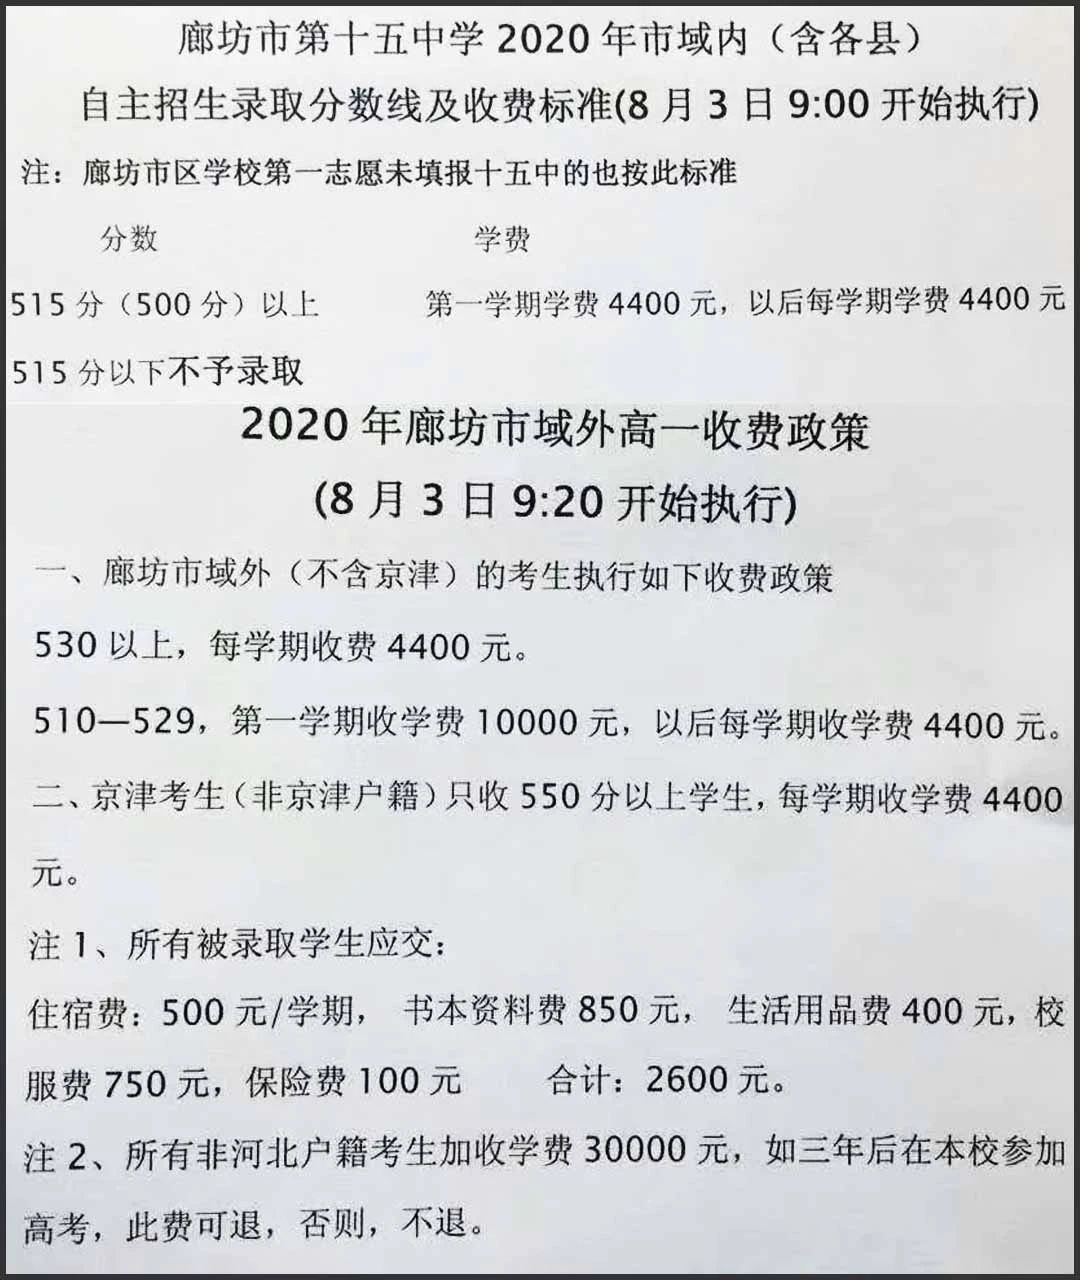 廊坊市第十五中学 2020 年市域内（含各县）
自主招生录取分数线及收费标准(8 月 3 日 9:00 开始执行)
注：廊坊市区学校第一志愿未填报十五中的也按此标准
分数 学费
515 分（500 分）以上 第一学期学费 4400 元，以后每学期学费 4400 元
515 分以下不予录取
2020 年廊坊市域外高一收费政策
(8 月 3 日 9:20 开始执行)
一、廊坊市域外（不含京津）的考生执行如下收费政策
530 以上，每学期收费 4400 元。
510—529，第一学期收学费 10000 元，以后每学期收学费 4400 元。
二、京津考生（非京津户籍）只收 550 分以上学生，每学期收学费 4400
元。
注 1、所有被录取学生应交：
住宿费：500 元/学期， 书本资料费 850 元， 生活用品费 400 元，校
服费 750 元，保险费 100 元 合计：2600 元。
注 2、所有非河北户籍考生加收学费 30000 元，如三年后在本校参加
高考，此费可退，否则，不退。